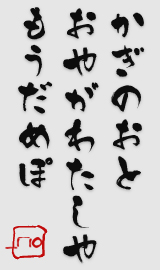 かぎのおと
おやがわたしや
もうだめぽ